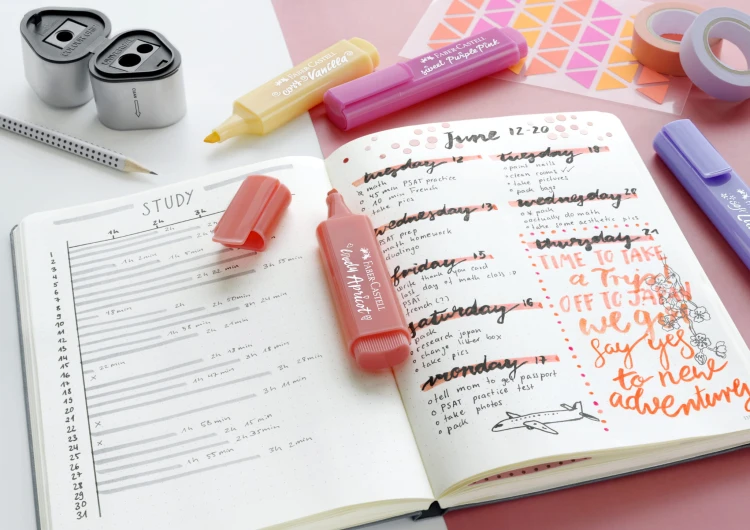 FABER-CASTELL
cosy Vanilla
FABER-CASTELL
sweet Purple Pink
STUDY
1h 2h 3h
1
2
3
4
5
6
7
8
9
10
11
12
13
14
15
16
17
18
19
20
21
22
23
24
25
26
27
28
29
30
31
2h 22 min
3h 55 min
18 min
2h
2h 50min
3h 20 min
1h 48 min
2h 18 min
3h 18 min
1h 47 min
3h 11 min
x
x
1h 58 min
2h 15 min
2h 35min
1h 55 min
3h 2 min
FABER-CASTELL
Candy Apricot
June 12-20
tuesday 12
math
45 min PSAT practice
10 min French
take pics
wednesday 13
PSAT prep
math homework
duolingo
friday 15
write thank you card
last day of math class :D
PSAT
french (?)
saturday 16
pack
research japan
change litter box
take pics
monday 17
tell mom to get passport
PSAT practice test
take photos
pack
tuesday
paint nails
clean rooms
take pictures
pack bags
wednesday 20
pack
actually do math
take some aesthetic pics
thursday 21
TIME TO TAKE
a Trip!
OFF TO JAPAN
we go
say yes
to new
adventures